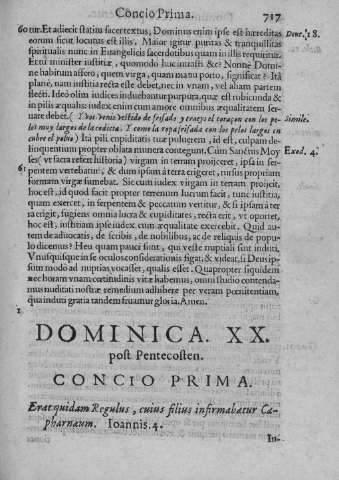 Concio Prima. 717
60 tur. Et adiecit statim sacer textus; Dominus enim ipse est hæreditas Deut. 18.
eorum sicut locutus est illis. Maior igitur puritas & tranquillitas
spiritualis nunc in Euangelicis sacerdotibus quam in illis requiritur.
Et tu minister iustitiæ, quomodo huc intrasti &c? Nonne Domi-
ne habitum assero, quem virga, quam manu porto, significat? Ita
planè, nam iustitia recta este debet, nec in vnam, vel aliam partem
flecti. Ideo olim iudices induebantur purpura, quæ est rubicunda &
in pilis æqualis: iudex enim cum amore omnibus æqualitatem ser-
uare debet. (Y los venis vestido de forado y traeys el coraçon con los pe- Simile.
los muy largos de la codicia. Y come la ropa forrada con los pelos largos en
cubre el polvo) Ità pili cupiditatis tuæ puluerem, id est, culpam de-
linquentium propter oblata munera contegunt. Cum Sanctus Moy Exod. 4.
ses (vt sacra refert historia) virgam in terram proijceret, ipsa in ser-
61 pentem vertebatur; & dum ipsam à terra erigeret, rursus propriam
formam virgæ sumebat. Siccum iudex virgam in terram proijcit,
hoc est, id quod facit propter terrenum lucrum facit, tunc iustitia,
quam exercet, in serpentem & peccatum vertitur, & si ipsam à ter
ra erigit, fugiens omnia lucra & cupiditates, recta erit, vt oportet,
hoc est, iustitiam ipse iudex cum æqualitate exercebit. Quid au-
tem de aduocatis, de scribis, de nobilibus, ac de reliquis de popu-
lo dicemus? Heu quam pauci sunt, qui veste nuptiali sunt induti.
Vnusquisque in se oculos considerationis figat, & videat, si Deus ip-
sum modò ad nuptias vocasset, qualis esset. Quapropter siquidem
nec horam vnam certitudinis vitæ habemus, omni studio contenda-
mus nuditati nostræ remedium adhibere per veram pœnitentiam,
qua induti gratia tandem fruamur gloria. Amen.
1.
DOMINICA. XX.
post Pentecosten.
CONCIO PRIMA.
Erat quidam Regulus, cuius filius infirmabatur Ca-
pharnaum. Ioannis. 4.
In-